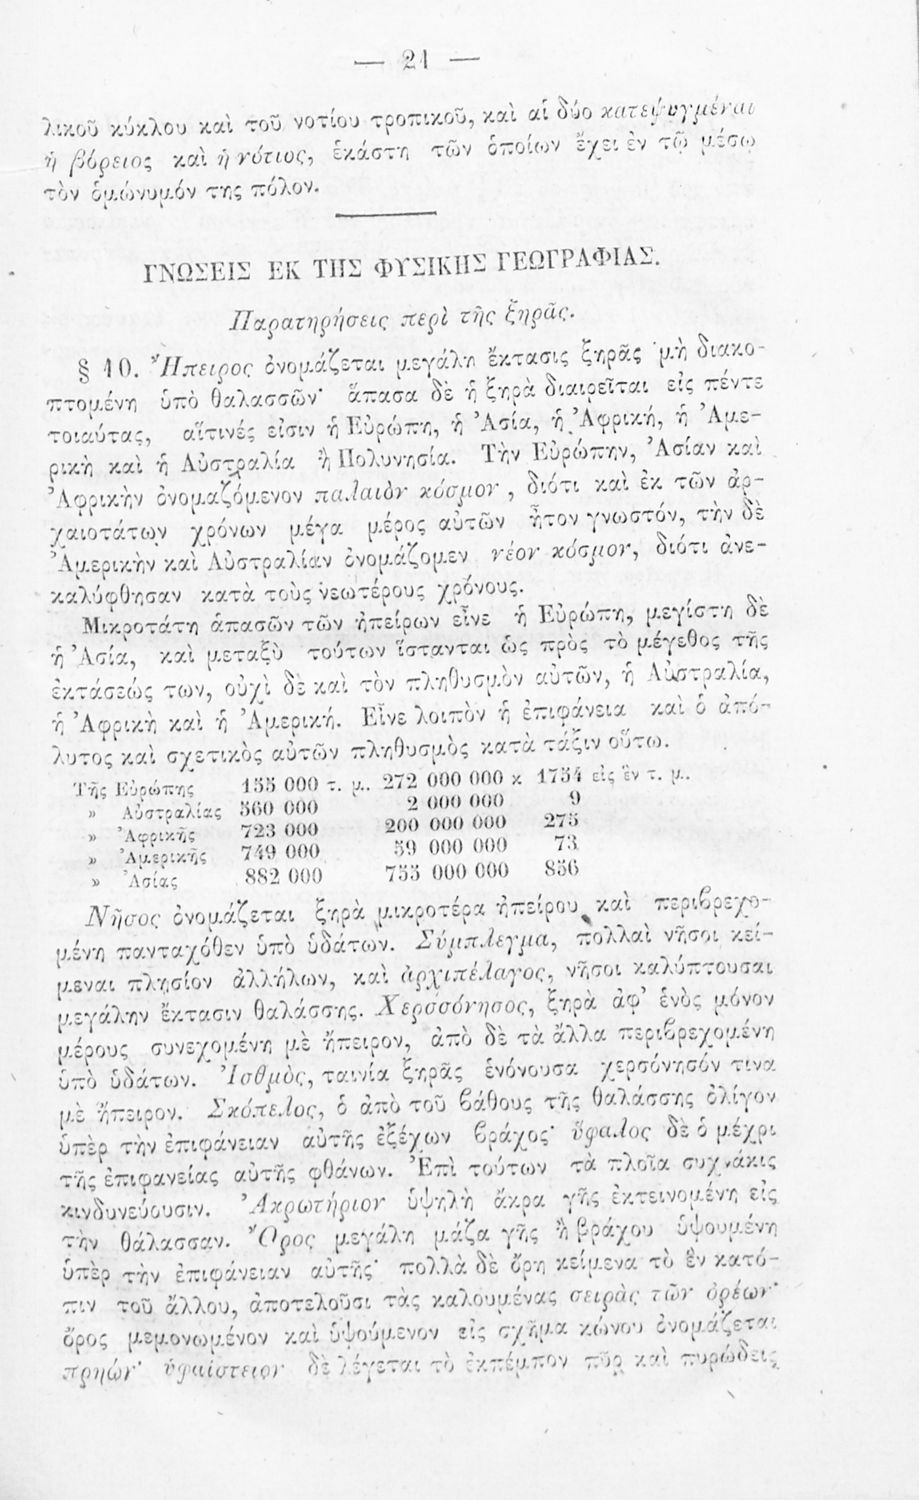 — 21 —
λικοῦ κύκλου καὶ τοῦ νοτίου τροπικοῦ, καὶ αἱ δύο κατεψυγμέναι
ἡ βόρειος καὶ ἡ νότιος, ἑκάστη τῶν ὁποίων ἔχει ἐν τῷ μέσῳ
τὸν ὁμώνυμόν της πόλον.
ΓΝΩΣΕΙΣ ΕΚ ΤΗΣ ΦΥΣΙΚΗΣ ΓΕΩΓΡΑΦΙΑΣ.
Παρατηρήσεις περὶ τῆς ξηρᾶς.
§ 10. Ἤπειρος ὀνομάζεται μεγάλη ἔκτασις ξηρᾶς μὴ διακο-
πτομένη ὑπὸ θαλασσῶν· ἅπασα δὲ ἡ ξηρὰ διαιρεῖται εἰς πέντε
τοιαύτας, αἵτινές εἰσιν ἡ Εὐρώπη, ἡ Ἀσία, ἡ Ἀφρική, ἡ Ἀμε-
ρικὴ καὶ ἡ Αὐστραλία ἢ Πολυνησία. Τὴν Εὐρώπην, Ἀσίαν καὶ
Ἀφρικὴν ὀνομαζόμενον παλαιὸν κόσμον, διότι καὶ ἐκ τῶν ἀρ-
χαιοτάτων χρόνων μέγα μέρος αὐτῶν ἦτον γνωστόν, τὴν δὲ
Ἀμερικὴν καὶ Αὐστραλίαν ὀνομάζομεν νέον κόσμον, διότι ἀνε-
καλύφθησαν κατὰ τοὺς νεωτέρους χρόνους.
Μικροτάτη ἁπασῶν τῶν ἠπείρων εἶνε ἡ Εὐρώπη, μεγίστη δὲ
ἡ Ἀσία, καὶ μεταξὺ τούτων ἵστανται ὡς πρὸς τὸ μέγεθος τῆς
ἐκτάσεώς των, οὐχὶ δὲ καὶ τὸν πληθυσμὸν αὐτῶν, ἡ Αὐστραλία,
ἡ Ἀφρικὴ καὶ ἡ Ἀμερική. Εἶνε λοιπὸν ἡ ἐπιφάνεια καὶ ὁ ἀπό-
λυτος καὶ σχετικὸς αὐτῶν πληθυσμὸς κατὰ τάξιν οὕτω.
Τῆς Εὐρώπης 155 000 τ. μ.. 272 000 000 κ 1754 εἰς ἓν τ. μ..
» Αὐστραλίας 560 000 2 000 000 9
» Ἀφρικῆς 723 000 200 000 000 275
» Ἀμερικῆς 749 000 59 000 000 73
» Ἀσίας 882 000 755 000 000 856
Νῆσος ὀνομάζεται ξηρὰ μικροτέρα ἠπείρου καὶ περιβρεχο-
μένη πανταχόθεν ὑπὸ ὑδάτων. Σύμπλεγμα, πολλαὶ νῆσοι κεί-
μεναι πλησίον ἀλλήλων, καὶ ἀρχιπέλαγος, νῆσοι καλύπτουσαι
μεγάλην ἔκτασιν θαλάσσης. Χερσόνησος, ξηρὰ ἀφ’ ἑνὸς μόνον
μέρους συνεχομένη μὲ ἤπειρον, ἀπὸ δὲ τὰ ἄλλα περιβρεχομένη
ὑπὸ ὑδάτων. Ἰσθμὸς, ταινία ξηρᾶς ἑνόνουσα χερσόνησόν τινα
μὲ ἤπειρον. Σκόπελος, ὁ ἀπὸ τοῦ βάθους τῆς θαλάσσης ὀλίγον
ὑπὲρ τὴν ἐπιφάνειαν αὐτῆς ἐξέχων βράχος· ὕφαλος δὲ ὁ μέχρι
τῆς ἐπιφανείας αὐτῆς φθάνων. Ἐπὶ τούτων τὰ πλοῖα συχνάκις
κινδυνεύουσιν. Ἀκρωτήριον ὑψηλὴ ἄκρα γῆς ἐκτεινομένη εἰς
τὴν θάλασσαν. Ὄρος μεγάλη μάζα γῆς ἢ βράχου ὑψουμένη
ὑπὲρ τὴν ἐπιφάνειαν αὐτῆς· πολλὰ δὲ ὄρη κείμενα τὸ ἓν κατό-
πιν τοῦ ἄλλου, ἀποτελοῦσι τὰς καλουμένας σειρὰς τῶν ὀρέων·
ὄρος μεμονωμένον καὶ ὑψούμενον εἰς σχῆμα κώνου ὀνομάζεται
πρηών· ὑφαίστειον δὲ λέγεται τὸ ἐκπέμπον πῦρ καὶ πυρώδεις